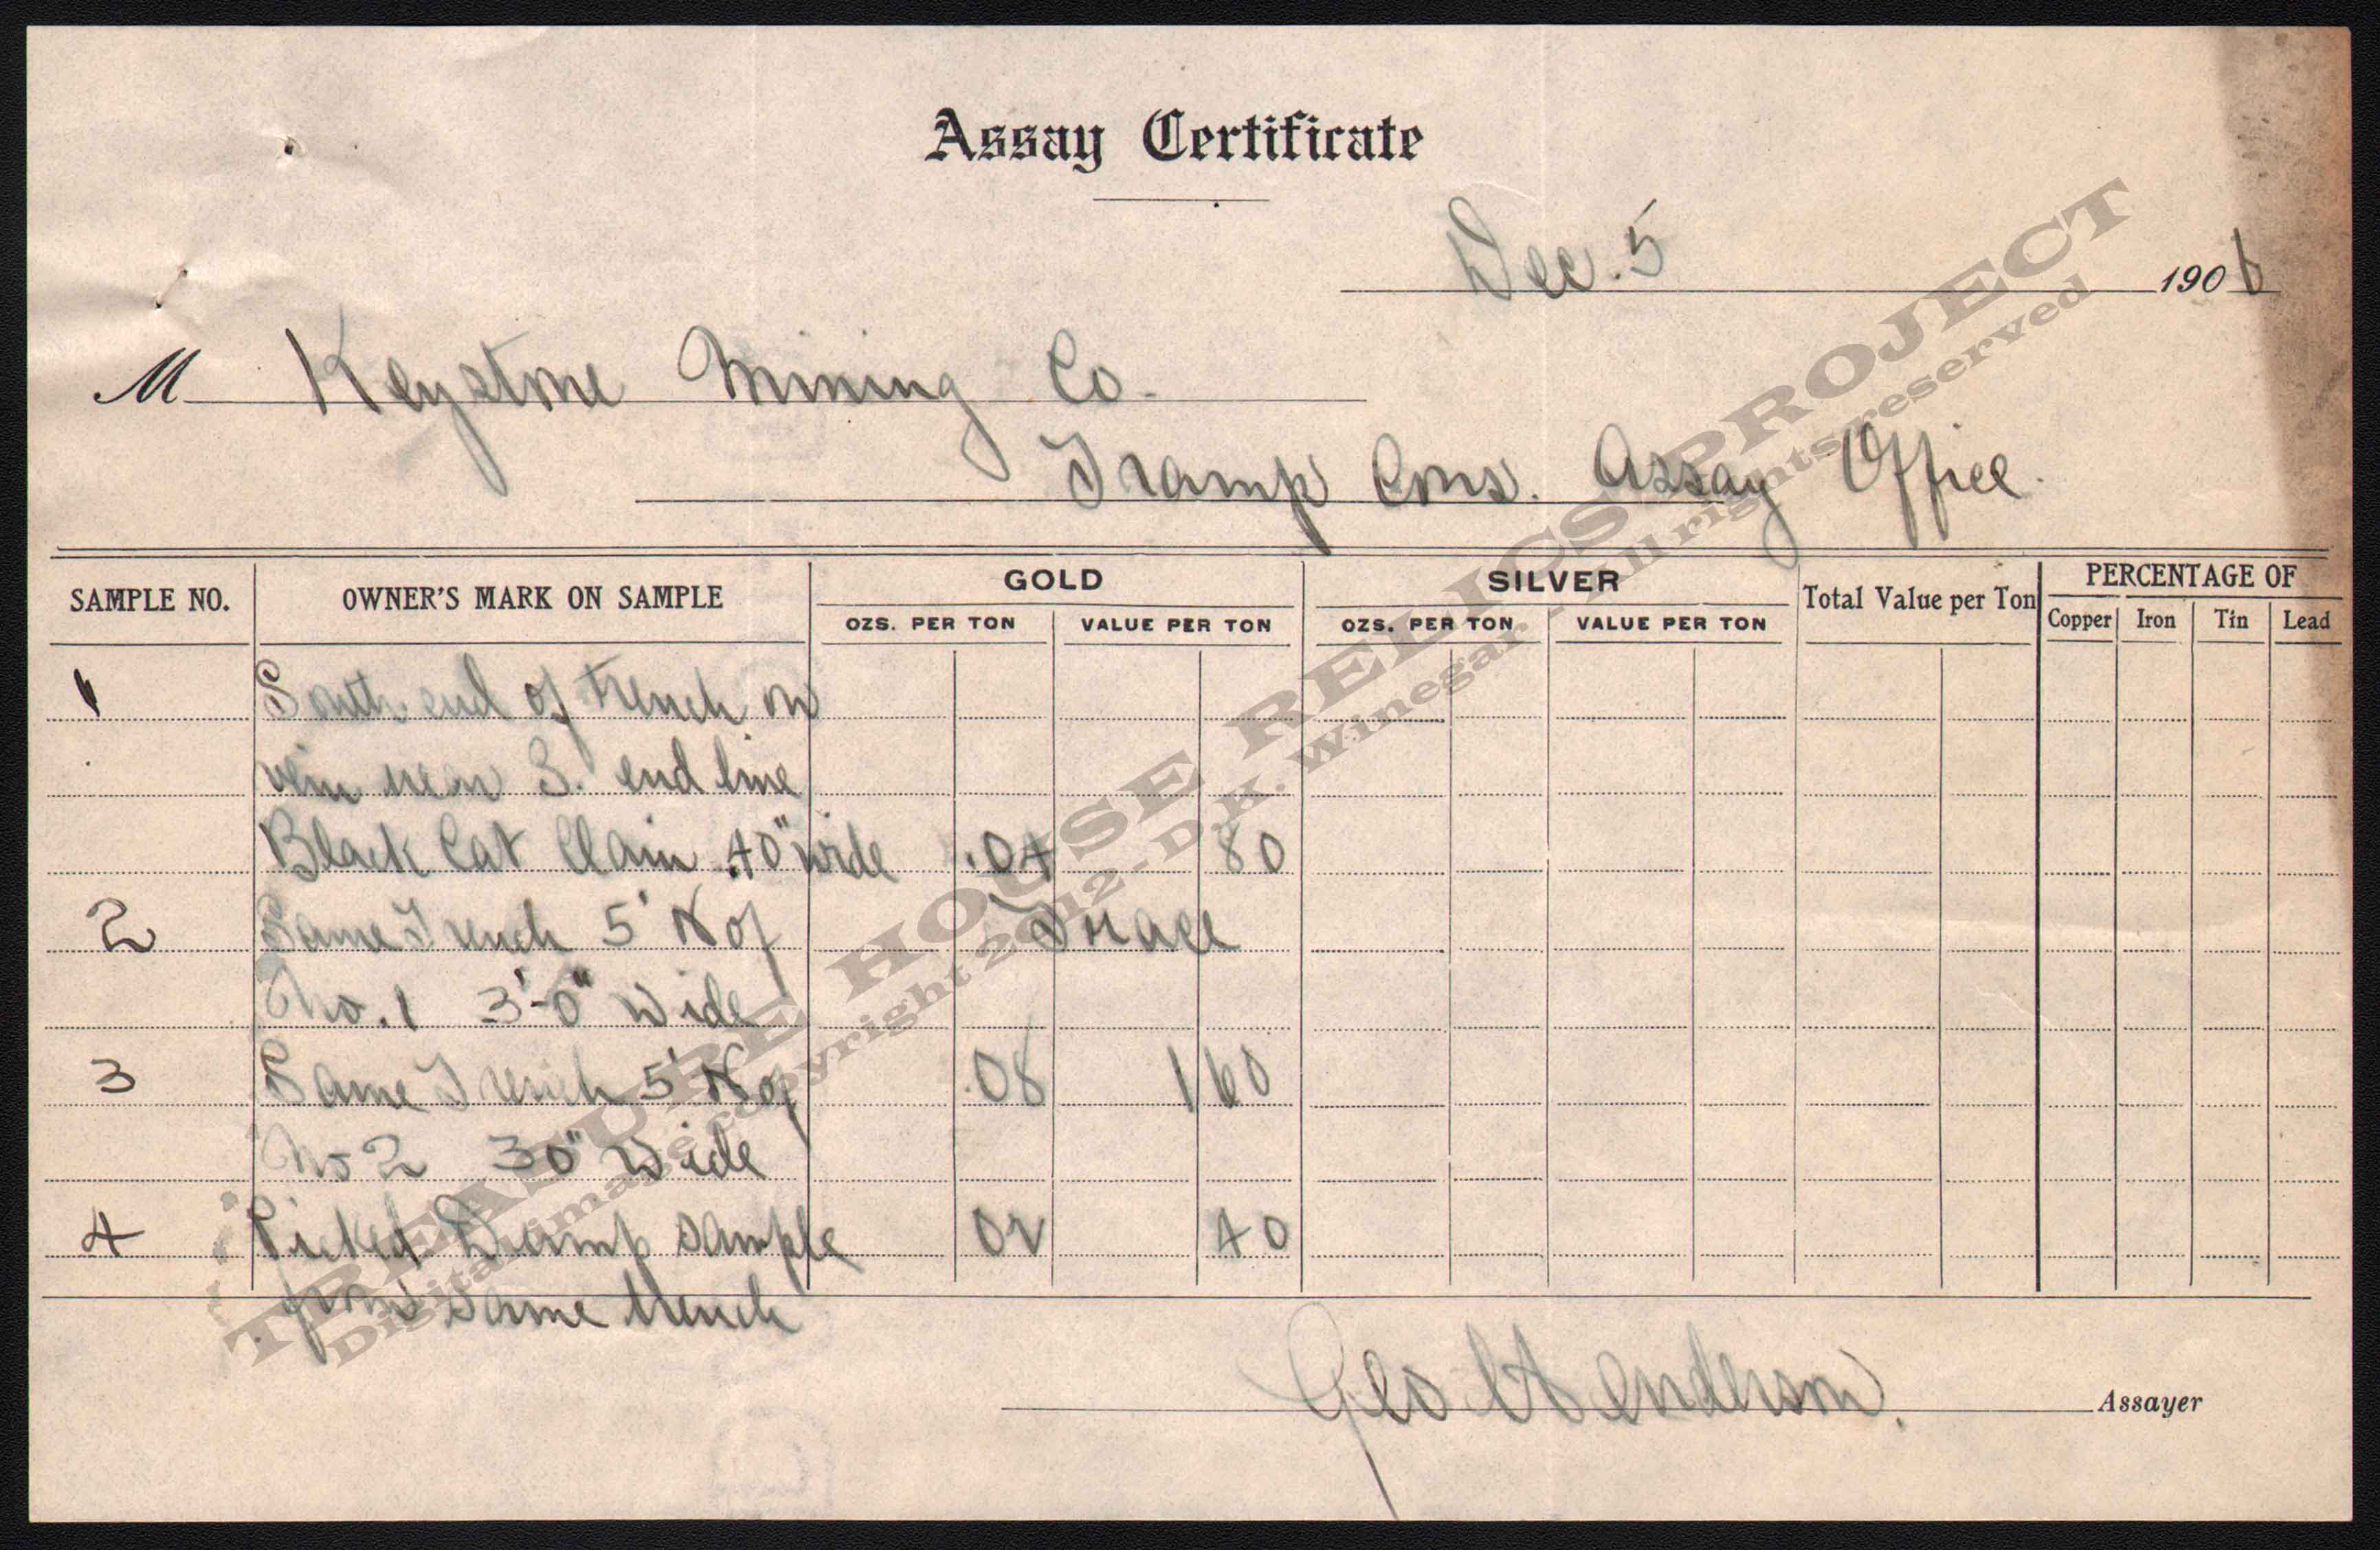 Assay Certificate
Dec. 5 1906
M Keystone Mining Co.
Tramp Cons. Assay Office.
SAMPLE NO. OWNER'S MARK ON SAMPLE GOLD SILVER Total Value per Ton PERCENTAGE OF
OZS. PER TON VALUE PER TON OZS. PER TON VALUE PER TON Copper Iron Tin Lead
1 South end of trench on
vein near S. end line
Black Cat Claim 40" wide .04 80
2 Same Trench 5' N of Trace
No. 1 3'-0" Wide
3 Same Trench 5' N of .08 1 60
No 2 30" Wide
4 Picked Dump sample 02 40
from same trench
Geo H Henderson. Assayer
TREASURE HOUSE RELICS PROJECT
Digital image copyright 2012 - D.K. Winegar - All rights reserved